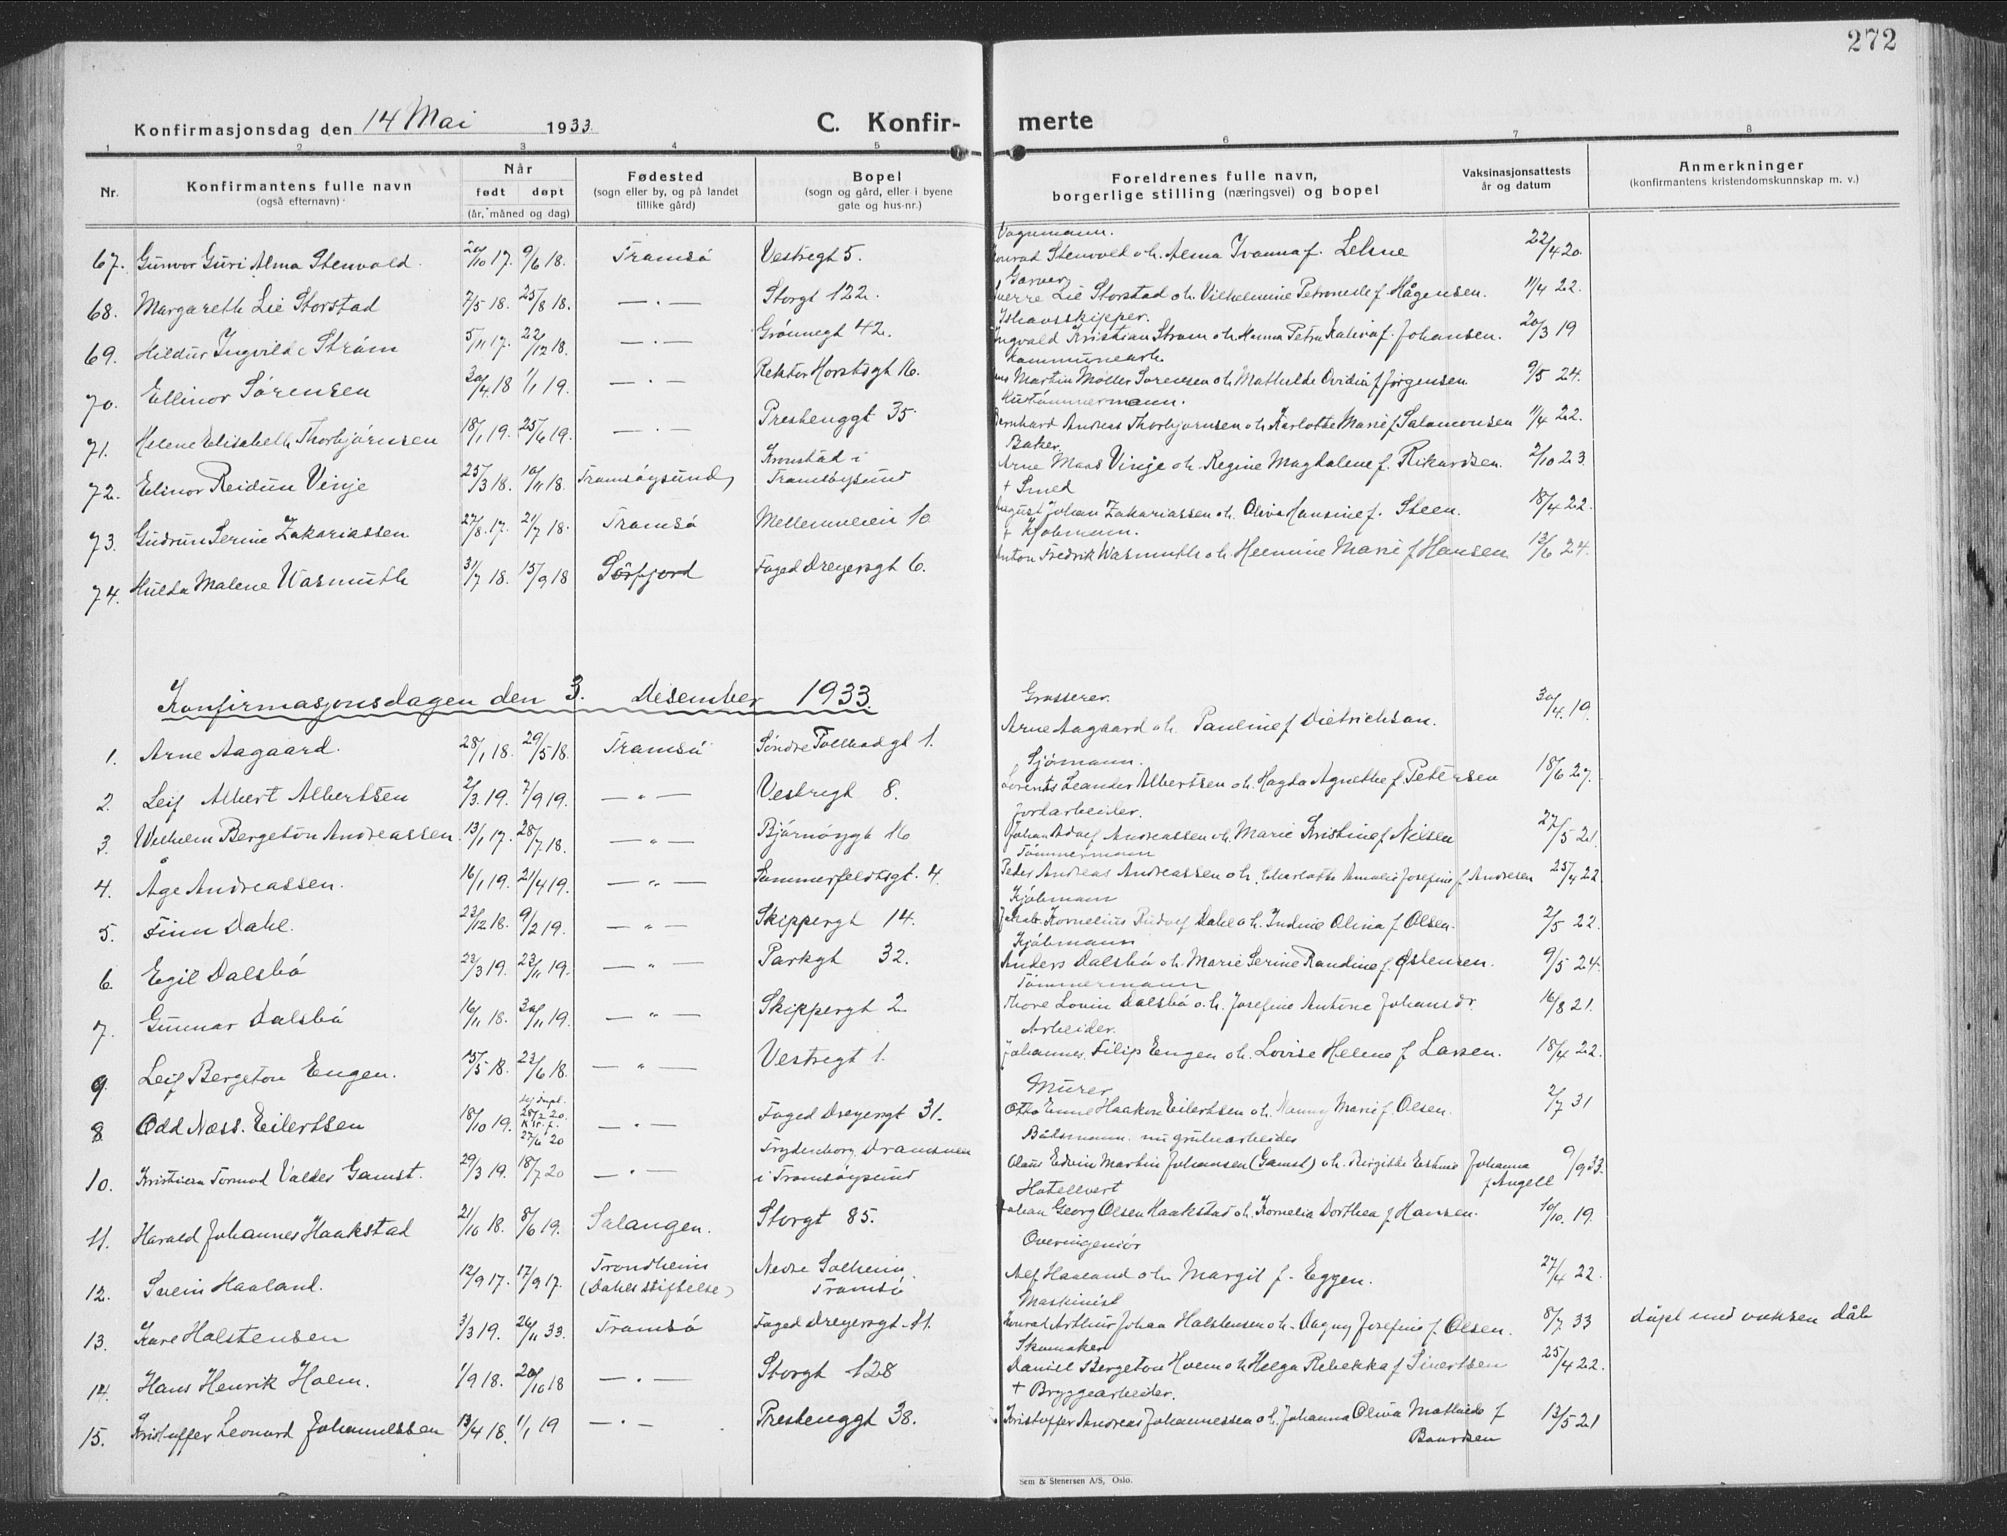 272
Konfirmasjonsdag den 14 Mai 1933
C. Konfir- merte
1 2 3 4 5 6 7 8
Nr.
Konfirmantens fulle navn
(også efternavn)
Når
født døpt
(år, måned og dag)
Fødested
(sogn eller by, og på landet
tillike gård)
Bopel
(sogn og gård, eller i byene
gate og hus-nr.)
Foreldrenes fulle navn,
borgerlige stilling (næringsvei) og bopel
Vaksinasjonsattests
år og datum
Anmerkninger
(konfirmantens kristendomskunnskap m. v.)
Vognmann.
67. Gunvor Guri Alma Stenvold. 20/10 17. 9/6 18. Tromsø Vestregt 5. Konrad Stenvold o.h. Alma Ivanna f. 22/4 20.
Garver
68. Margareth Lie Storstad 7/5 18. 25/8 18. — . — Storgt 122. Sverre Lie Storstad o.h. Vilhelmine Petronelle f. Hågensen. 11/4 22.
Ishavsskipper.
69. Hildur Ingvilde Strøm 5/11 17. 22/12 18. — . — Grønnegt 42. Ingvald Kristian Strøm o.h. Hanna Petra Kaliva f. Johansen. 20/3 19
Kommunearb.
70. Ellinor Sørensen 30/4 18 1/1 19. — . — Rektor Horstsgt 16. Martin Møller Sørensen o.h. Mathilde Ovidia f Jørgensen 9/5 24.
Hustømmermann.
71. Helene Elisabeth Thorbjørnsen 18/1 19. 25/6 19. — . — Prestenggt 35. Bernhard Andreas Thorbjørnsen o.h. Karlotte Marie f Salomonsen 11/4 22.
Baker
72. Elinor Reidun Vinje 25/3 18. 10/11 18. Tromsøysund Kronstad i Tromsøysund Arne Maas Vinje o.h. Regine Magdalene f. Rikardsen. 2/10 23.
+ Smed
73. Gudrun Serine Zakariassen 27/8 17. 21/7 18. Tromsø Mellemveien 10. August Johan Zakariassen o.h. Oliva Hansine f. Steen. 18/4 22.
+ Kjøbmann.
74. Hulda Malene Wasmuth 31/7 18. 15/9 18 Sørfjord Foged Dreyersgt 6. Anton Fredrik Wasmuth o.h. Hermine Marie f Hansen 13/6 24.
Konfirmasjonsdagen den 3. Desember 1933.
Grosserer.
1. Arne Aagaard. 28/1 18. 29/5 18. Tromsø Søndre Tollbodgt 1. Arne Aagaard o.h. Pauline f Dietrichson. 30/4 19.
Sjømann.
2. Leif Albert Albertsen 2/3 19. 7/9 19. — " — Vestregt 8. Lorents Leander Albertsen o.h. Hagda Agnethe f. Petersen 18/6 27.
Jordarbeider.
3. Wilhelm Bergeton Andreassen 13/1 17. 28/7 18. — " — Bjørnøygt 16 Johan Adolf Andreassen o.h. Marie Kristine f. Nilsen 27/5 21.
Tømmermann
4. Åge Andreassen. 16/1 19. 21/4 19. — " — Sommerfeldtsgt. 4. Peder Andreas Andreassen o.h. Charlotte Amalie Josefine f. Andresen 25/4 22.
Kjøbmann
5. Finn Dahl. 23/12 18. 9/2 19. — " — Skippergt 14. Jakob Kornelius Rudolf Dahl o.h. Indine Olina f. Olsen. 2/5 22.
Kjøbmann
6. Egil Dalsbø 23/3 19. 23/11 19. — " — Parkgt 32. Anders Dalsbø o.h. Marie Serine Randine f. Østensen. 9/5 24.
Tømmermann
7. Gunnar Dalsbø 16/11 18. 30/11 19. — " — Skippergt 2. Thore Lovin Dalsbø o.h. Josefine Antone Johansdr. 16/8 21.
Arbeider.
9. Leif Bergeton Engen. 15/5 18. 23/6 18. — " — Vestregt 1. Johannes Filip Engen o.h. Lovise Helene f Larsen. 18/4 22.
Murer
8. Odd Næss. Eilertsen 18/10 19. hj.døpt 28/2 20. Kir. f. 27/6 20 — . — Foged Dreyersgt 31. Otto Haakon Eilertsen o.h. Nanny Marie f. Olsen. 2/7 31
Båtsmann. nu grubearbeider
10. Kristian Tormod Valdes Gamst. 29/3 19. 18/7 20 — . — Frydenborg, Dramsveien i Tromsøysund Olaus Edvin Martin Johansen (Gamst) o.h. Birgitte Johanna f Angell 9/9 33.
Hotellvert
11. Harald Johannes Haakstad 21/10 18. 8/6 19. Salangen. Storgt 85. Johan Georg Olsen Haakstad o.h. Kornelia Dorthea f Hansen. 10/10. 19.
Overingeniør
12. Svein Haaland. 12/9 17. 17/9 17. Trondheim (Dahls stiftelse) Nedre Solheim. Tromsø Alf Haaland o.h. Margit f. Eggen. 27/4 22.
Maskinist
13. Kåre Holstensen 3/3 19. 26/11 33. Tromsø Foged Dreyersgt. 11. Konrad Arthur Johan Holstensen o.h. Dagny Josefine f. Olsen. 8/7 33 døpt med voksen dåb
Skomaker
14. Hans Henrik Holm. 1/9 18. 20/10 18 — . — Storgt 128 Daniel Bergeton Holm o.h. Helga Rebekka f Sivertsen 25/4 22.
+ Bryggearbeider.
15. Kristoffer Leonard Johannessen 13/4 18. 1/1 19 — . — Prestenggt 38. Kristoffer Andreas Johannessen o.h. Johanna Oliva Mathilde f Baardsen 13/5 21
Sem & Stenersen A/S, Oslo.